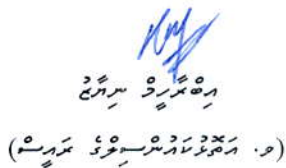 އިބްރާހީމް ނިޔާޒު
(ވ. އަތޮޅުކައުންސިލްގެ ރައީސް)